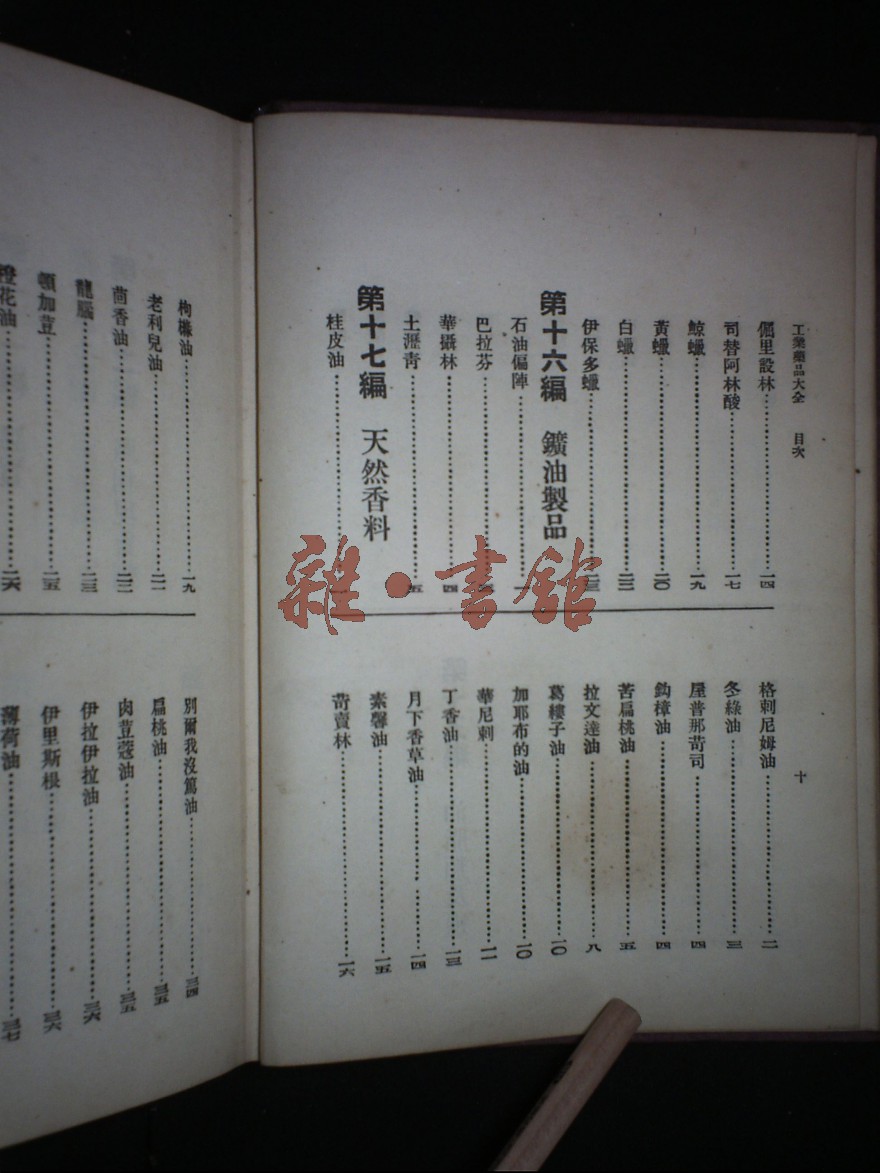 工業藥品大全 目次
十
倔里設林 一四
司替阿林酸 一七
鯨蠟 一九
黃蠟 二〇
白蠟 二二
伊保多蠟 二三
第十六編 鑛油製品
石油偏陣 一
巴拉芬
華攝林 四
土瀝青 五
第十七編 天然香料
桂皮油 一
格剌尼姆油 二
冬綠油 三
屋普那苛司 四
鈎樟油 四
苦扁桃油 五
拉文達油 八
葛縷子油 一〇
加耶布的油 一〇
華尼剌 一一
丁香油 一三
月下香草油 一四
素馨油 一五
苛賣林 一六
枸櫞油 一九
老利兒油 二一
茴香油 二二
龍腦 二三
頓加荳 二五
橙花油 二六
別爾我沒篤油 三四
扁桃油 三五
肉荳蔻油 三五
伊拉伊拉油 三六
伊里斯根 三六
薄荷油 三七
雜·書館